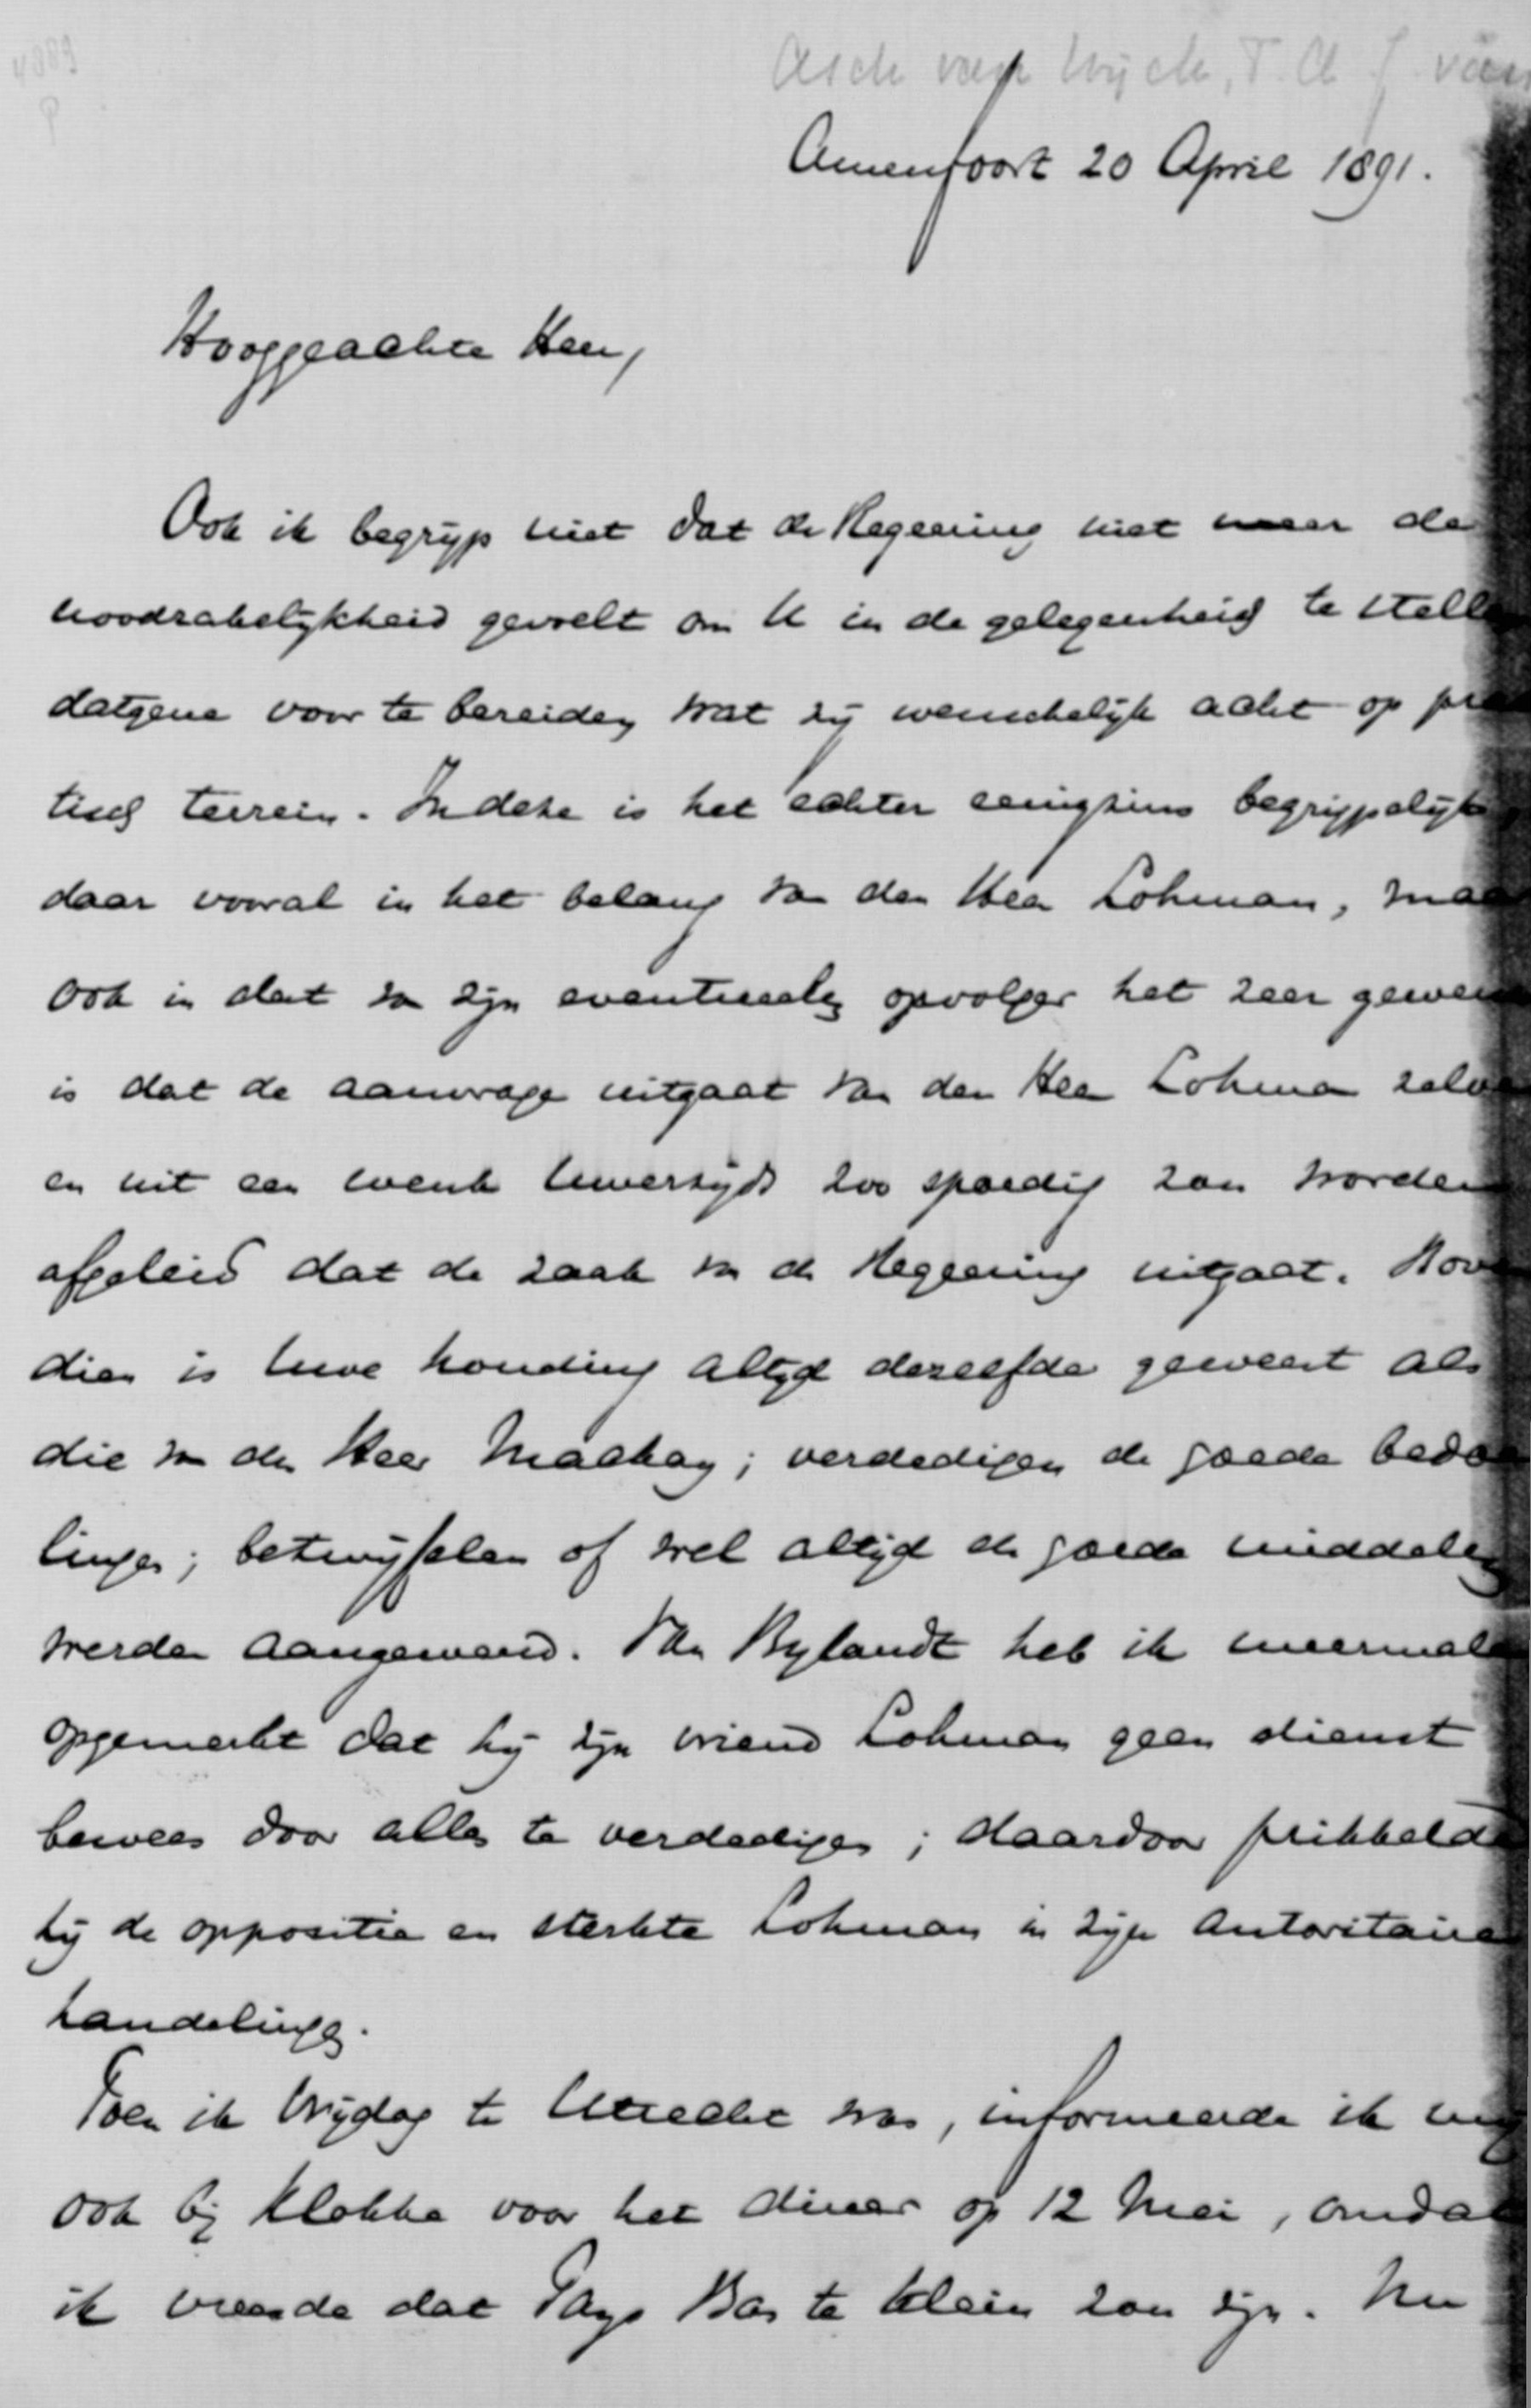 4889
P
Asch van Wijck, T. A. J. van
Amersfoort 20 April 1891.
Hooggeachte Heer,
Ook ik begryp niet dat de Regeering niet meer de
noodzakelykheid gevoelt om U in de gelegenheid te stellen
datgene voor te bereiden wat zy wenschelyk acht op prac
tisch terrein. In deze is het echter eenigzins begrypelyk,
daar vooral in het belang van den Heer Lohman, maar
ook in dat van zyn eventueelen opvolger het zeer gewenscht
is dat de aanvrage uitgaat van den Heer Lohman zelven
en uit een wenk Uwerzyds zoo spoedig zou worden
afgeleid dat de zaak van de Regeering uitgaat. Boven
dien is Uwe houding altyd dezelfde geweest als
die van den Heer Mackay; verdedigen de goede bedoe
lingen; betwyfelen of wel altyd de goede middelen
werden aangewend. Van Bylandt heb ik meermalen
opgemerkt dat hy zyn vriend Lohman geen dienst
bewees door alles te verdedigen; daardoor prikkelde
hy de oppositie en sterkte Lohman in zyn autoritaire
handelingen.
Toen ik Vrydag te Utrecht was, informeerde ik my
ook by Klokke voor het diner op 12 Mei, omdat
ik vreesde dat Pays Bas te klein zou zyn. Nu